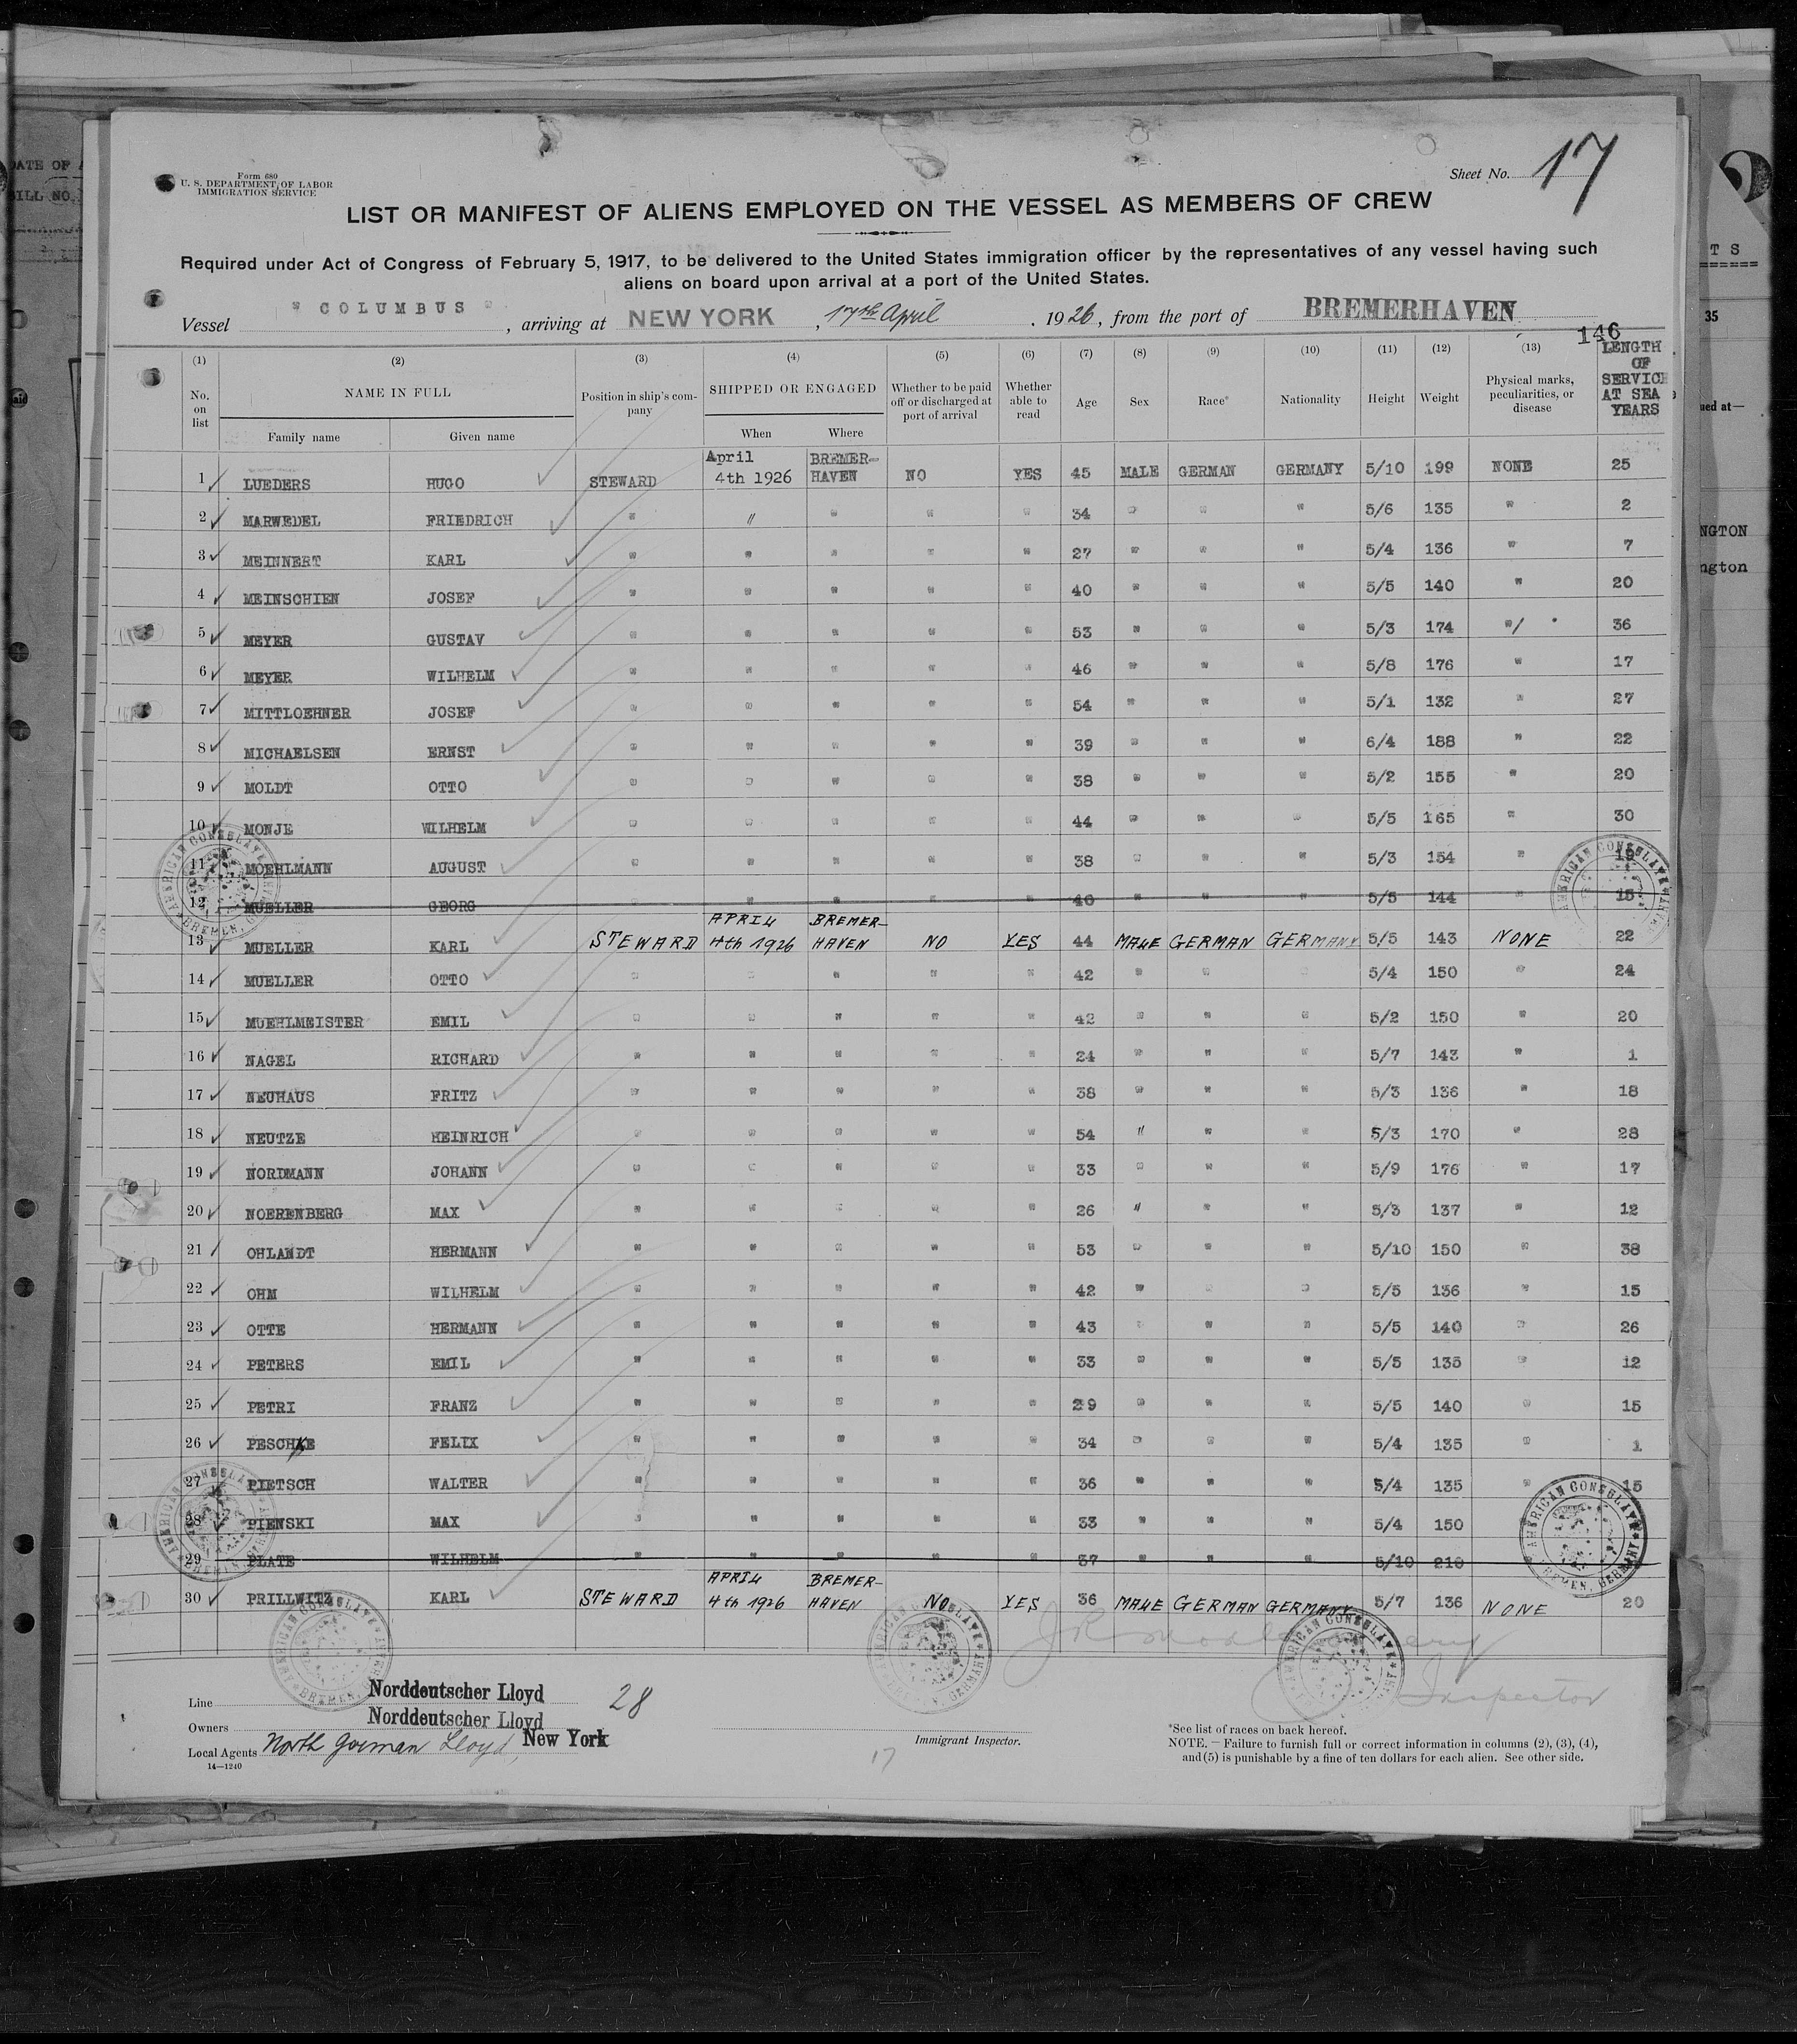 Form 680
U. S. DEPARTMENT OF LABOR
IMMIGRATION SERVICE
Sheet No. 17
LIST OR MANIFEST OF ALIENS EMPLOYED ON THE VESSEL AS MEMBERS OF CREW
Required under Act of Congress of February 5, 1917, to be delivered to the United States immigration officer by the representatives of any vessel having such
aliens on board upon arrival at a port of the United States.
Vessel " COLUMBUS " , arriving at NEW YORK , 17th April , 1926, from the port of BREMERHAVEN
146
(1) (2) (3) (4) (5) (6) (7) (8) (9) (10) (11) (12) (13) LENGTH OF SERVICE AT SEA YEARS
No. on list NAME IN FULL Position in ship's company SHIPPED OR ENGAGED Whether to be paid off or discharged at port of arrival Whether able to read Age Sex Race* Nationality Height Weight Physical marks, peculiarities, or disease
Family name Given name When Where
1 LUEDERS HUGO STEWARD April 4th 1926 BREMER-HAVEN NO YES 45 MALE GERMAN GERMANY 5/10 199 NONE 25
2 MARWEDEL FRIEDRICH " " " " " 34 " " " 5/6 135 " 2
3 MEINNERT KARL " " " " " 27 " " " 5/4 136 " 7
4 MEINSCHIEN JOSEF " " " " " 40 " " " 5/5 140 " 20
5 MEYER GUSTAV " " " " " 53 " " " 5/3 174 " 36
6 MEYER WILHELM " " " " " 46 " " " 5/8 176 " 17
7 MITTLOEHNER JOSEF " " " " " 54 " " " 5/1 132 " 27
8 MICHAELSEN ERNST " " " " " 39 " " " 6/4 188 " 22
9 MOLDT OTTO " " " " " 38 " " " 5/2 155 " 20
10 MONJE WILHELM " " " " " 44 " " " 5/5 165 " 30
11 MOEHLMANN AUGUST " " " " " 38 " " " 5/3 154 " 19
12 MUELLER GEORG " " " " " 40 " " " 5/5 144 " 15
13 MUELLER KARL STEWARD APRIL 4th 1926 BREMER-HAVEN NO YES 44 MALE GERMAN GERMANY 5/5 143 NONE 22
14 MUELLER OTTO " " " " " 42 " " " 5/4 150 " 24
15 MUEHLMEISTER EMIL " " " " " 42 " " " 5/2 150 " 20
16 NAGEL RICHARD " " " " " 24 " " " 5/7 143 " 1
17 NEUHAUS FRITZ " " " " " 38 " " " 5/3 136 " 18
18 NEUTZE HEINRICH " " " " " 54 " " " 5/3 170 " 28
19 NORDMANN JOHANN " " " " " 33 " " " 5/9 176 " 17
20 NOERENBERG MAX " " " " " 26 " " " 5/3 137 " 12
21 OHLANDT HERMANN " " " " " 53 " " " 5/10 150 " 38
22 OHM WILHELM " " " " " 42 " " " 5/5 136 " 15
23 OTTE HERMANN " " " " " 43 " " " 5/5 140 " 26
24 PETERS EMIL " " " " " 33 " " " 5/5 135 " 12
25 PETRI FRANZ " " " " " 29 " " " 5/5 140 " 15
26 PESCHKE FELIX " " " " " 34 " " " 5/4 135 " 1
27 PIETSCH WALTER " " " " " 36 " " " 5/4 135 " 15
28 PIENSKI MAX " " " " " 33 " " " 5/4 150
29 PLATE WILHELM " " " " " 37 " " " 5/10 210
30 PRILLWITZ KARL STEWARD APRIL 4th 1926 BREMER-HAVEN NO YES 36 MALE GERMAN GERMANY 5/7 136 NONE 20
AMERICAN CONSULATE BREMEN, GERMANY
AMERICAN CONSULATE BREMEN, GERMANY
AMERICAN CONSULATE BREMEN, GERMANY
AMERICAN CONSULATE BREMEN, GERMANY
AMERICAN CONSULATE BREMEN, GERMANY
AMERICAN CONSULATE BREMEN, GERMANY
AMERICAN CONSULATE BREMEN, GERMANY
Inspector
Line Norddeutscher Lloyd 28
Owners Norddeutscher Lloyd
Local Agents North German Lloyd, New York
14—1240
17
Immigrant Inspector.
*See list of races on back hereof.
NOTE.—Failure to furnish full or correct information in columns (2), (3), (4),
and (5) is punishable by a fine of ten dollars for each alien. See other side.
DATE OF
BILL NO.
T S
35
ued at—
NGTON
ngton